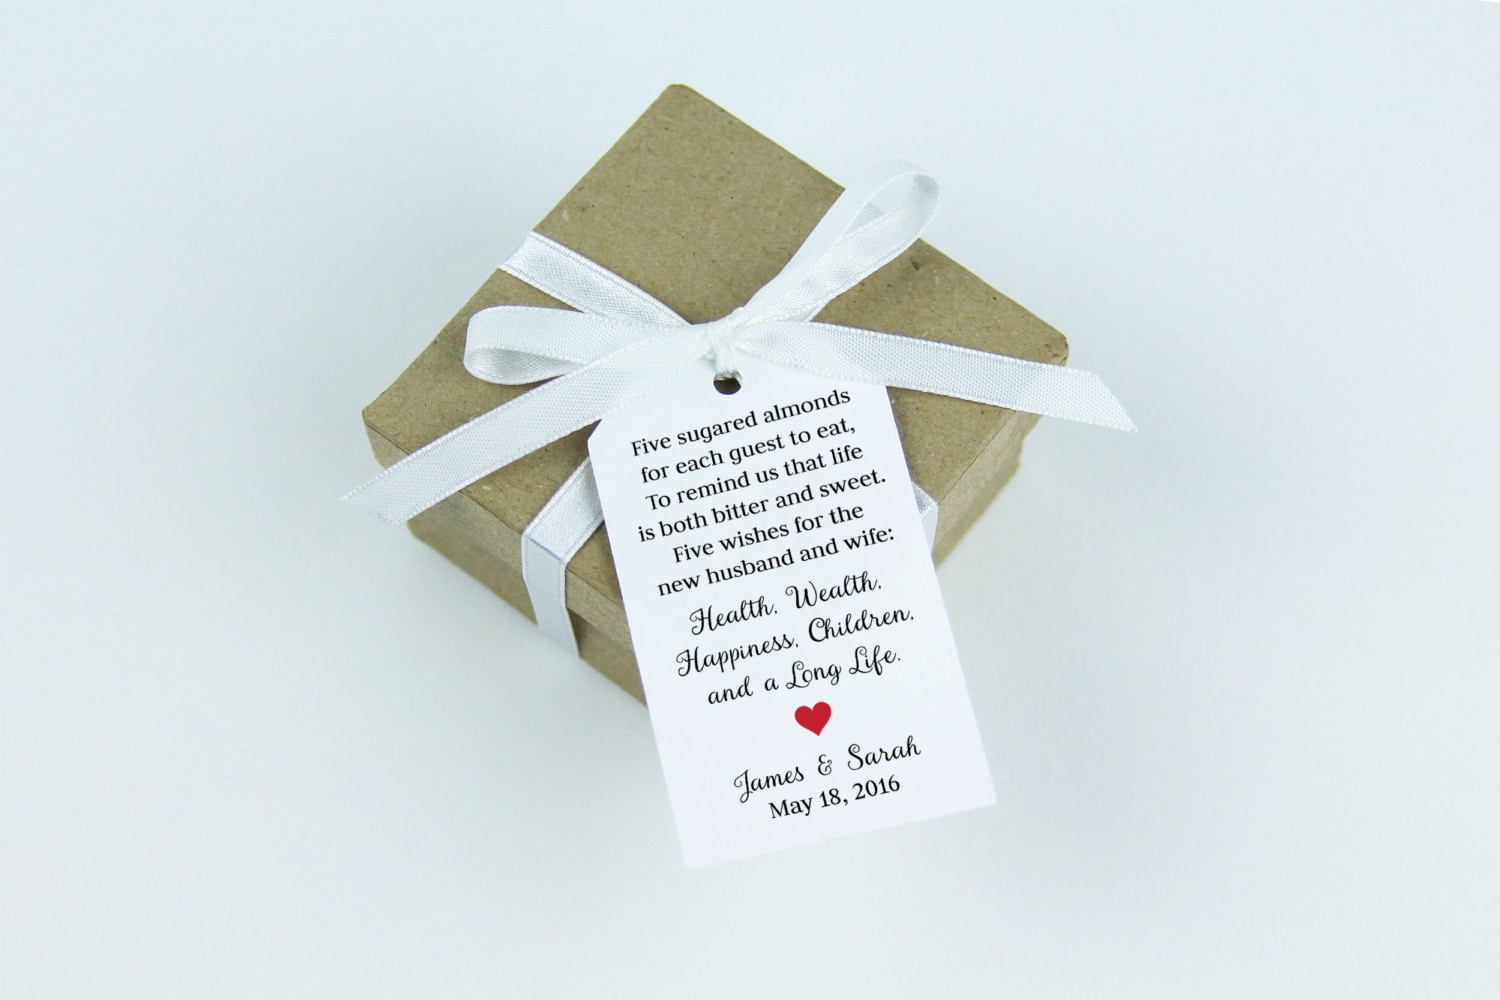 Five sugared almonds
for each guest to eat,
To remind us that life
is both bitter and sweet.
Five wishes for the
new husband and wife:
Health, Wealth,
Happiness, Children,
and a Long Life.
James & Sarah
May 18, 2016